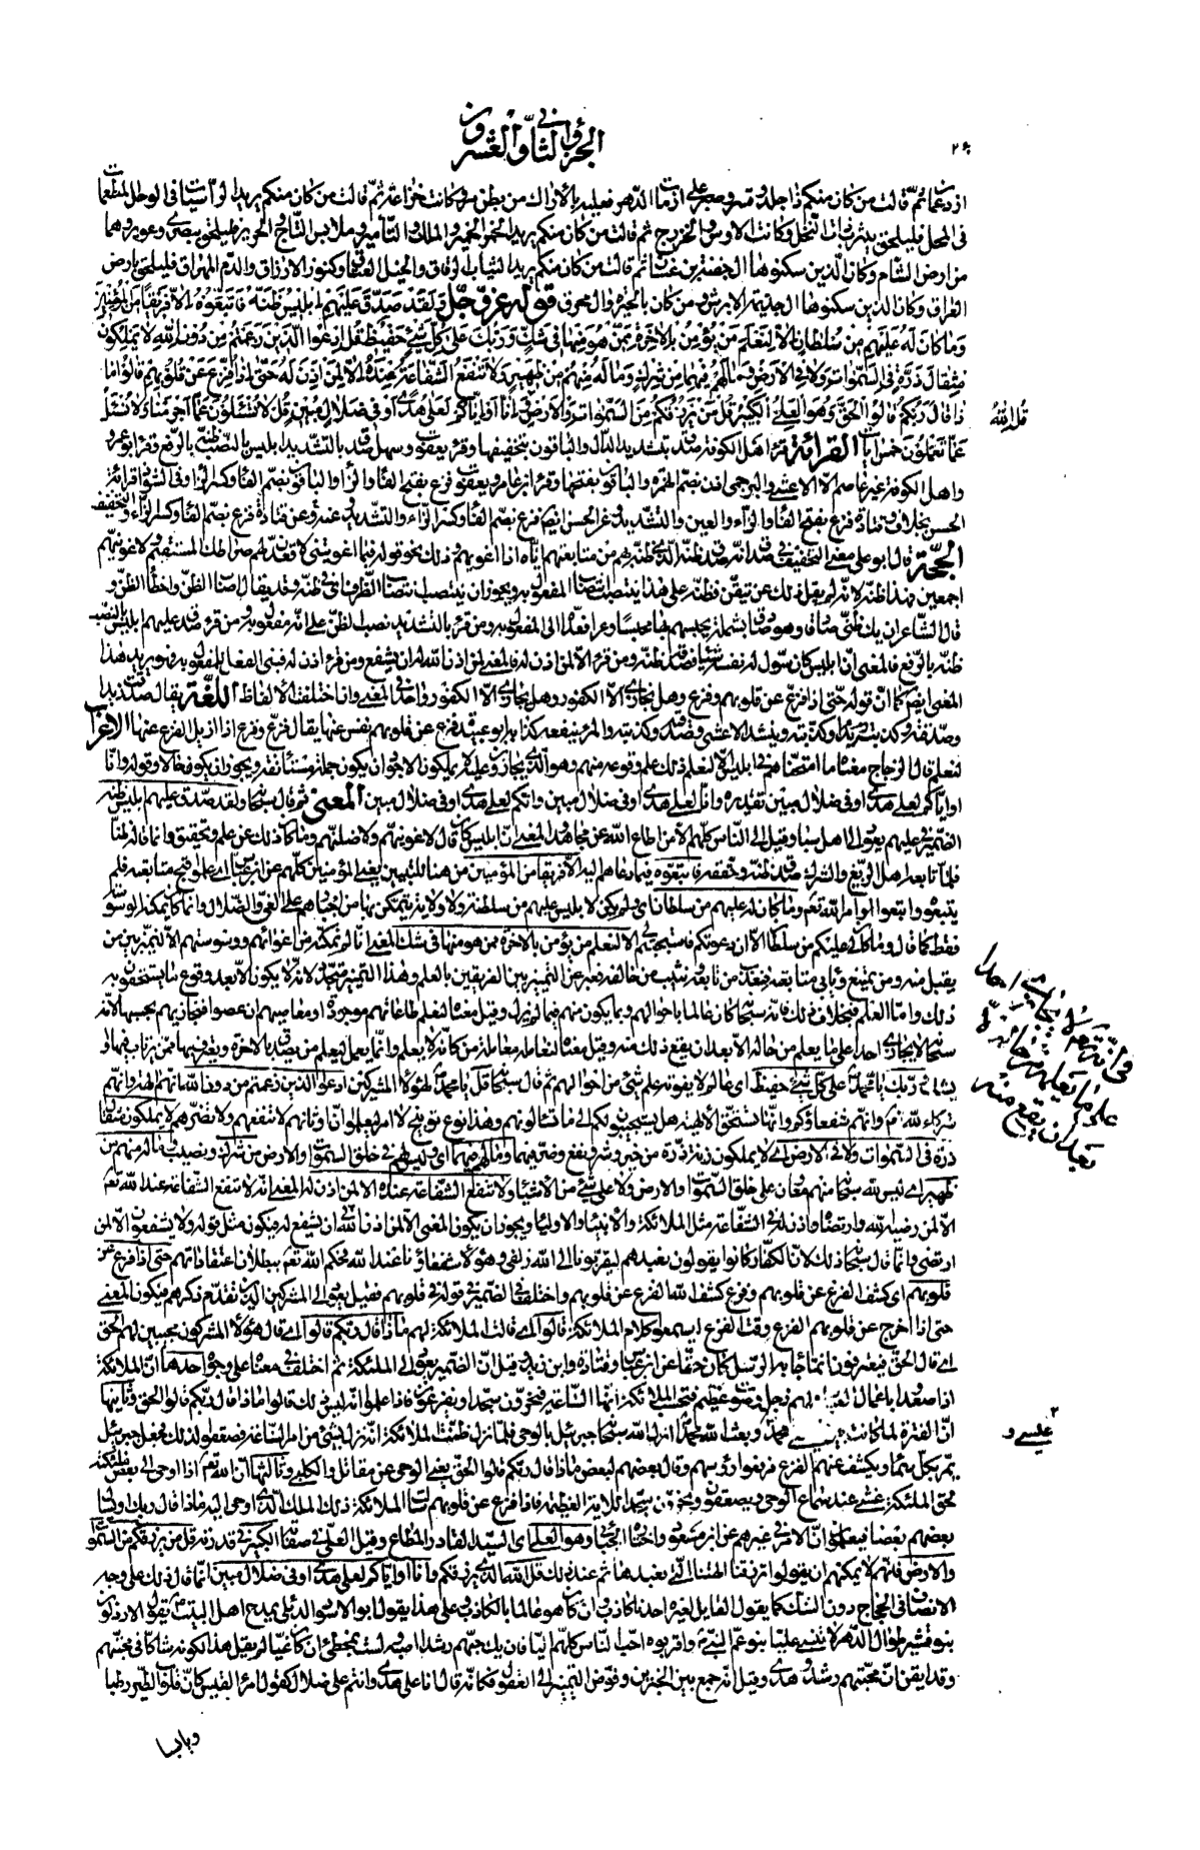 الجزؤ الثانى والعشرون
ازد عمان ثم قالت من كان منكم ذا جلد وقسر وصبر على ازمات الدهر فعليه بالاراك من بطن مر وكانت خزاعة ثم قالت من كان منكم يريد الراسيات فى الوحل المطعمات
فى المحل فليلحق بيثرب ذات النخل وكانت الاوس والخزرج ثم قالت من كان منكم يريد الخمر والخمير والملك والتأمير وملابس التاج والحرير فليلحق ببصرى وعوير وهما
من ارض الشام وكان الذين سكنوها ال جفنة بن غسان ثم قالت من كان منكم يريد الثياب الرقاق والخيل العتاق وكنوز الارزاق والدم المهراق فليلحق بارض
العراق وكان الذين سكنوها ال جذيمة الابرش ومن كان بالحيرة وال محرق قوله عز وجل وَلَقَدْ صَدَّقَ عَلَيْهِمْ اِبْلِيسُ ظَنَّهُ فَاتَّبَعُوهُ اِلَّا فَرِيقًا مِنَ الْمُؤْمِنِينَ
وَمَا كَانَ لَهُ عَلَيْهِمْ مِنْ سُلْطَانٍ اِلَّا لِنَعْلَمَ مَنْ يُؤْمِنُ بِالْاٰخِرَةِ مِمَّنْ هُوَ مِنْهَا فِى شَكٍّ وَرَبُّكَ عَلٰى كُلِّ شَىْءٍ حَفِيظٌ قُلِ ادْعُوا الَّذِينَ زَعَمْتُمْ مِنْ دُونِ اللهِ لَا يَمْلِكُونَ
مِثْقَالَ ذَرَّةٍ فِى السَّمٰوَاتِ وَلَا فِى الْاَرْضِ وَمَا لَهُمْ فِيهِمَا مِنْ شِرْكٍ وَمَا لَهُ مِنْهُمْ مِنْ ظَهِيرٍ وَلَا تَنْفَعُ الشَّفَاعَةُ عِنْدَهُ اِلَّا لِمَنْ اَذِنَ لَهُ حَتّٰى اِذَا فُزِّعَ عَنْ قُلُوبِهِمْ قَالُوا مَا
ذَا قَالَ رَبُّكُمْ قَالُوا الْحَقَّ وَهُوَ الْعَلِىُّ الْكَبِيرُ قُلْ مَنْ يَرْزُقُكُمْ مِنَ السَّمٰوَاتِ وَالْاَرْضِ وَاِنَّا اَوْ اِيَّاكُمْ لَعَلٰى هُدًى اَوْ فِى ضَلَالٍ مُبِينٍ قُلْ لَا تُسْئَلُونَ عَمَّا اَجْرَمْنَا وَلَا نُسْئَلُ
قُلِ اللهُ
عَمَّا تَعْمَلُونَ خمس ايات القرائة قرا اهل الكوفة صدق بتشديد الدال والباقون بتخفيفها وقرء يعقوب وسهل صدق بالتشديد ابليس بالنصب ظنه بالرفع وقرا ابوعمرو
واهل الكوفة غير عاصم الا الاعشى والبرجمى اذن بضم الهمزه والباقون بفتحها وقرا ابن عامر ويعقوب فزع بفتح الفا والزا والباقون بضم الفا وكسر الزا وفى الشواذ قرائة
الحسن بخلاف وقتادة فرغ بفتح الفا والراء والعين والتشديد وعن الحسن ايضا فرغ بضم الفا وكسر الراء والتشديد وعنه وعن قتادة فزع بضم الفا وكسر الزاء والتخفيف
الحجة قال ابو على معنى التخفيف فى صدق انه صدق ظنه الذى ظنه بهم من متابعتهم اياه اذا اغويهم وذلك نحو قوله فبما اغويتنى لاقعدن لهم صراطك المستقيم لاغوينهم
اجمعين فهذا ظنه لانه لم يقل ذلك عن تيقن فظنه على هذا ينتصب انتصاب المفعول به ويجوز ان ينتصب انتصاب الظرف اى فى ظنه وقد يقال اصاب الظن واخطأ الظن و
قال الشاعر ان يك ظنى صادقا وهو صادقى بشملة يحبسهم بها محبسا وعرا فعداه الى المفعول به ومن قرء بالتشديد نصب الظن على انه مفعول به ومن قرء صدق عليهم ابليس بالنصب
ظنه بالرفع فالمعنى ان ابليس كان سول له نفسه شيئا فصدقه ظنه ومن قرء الا لمن اذن له فالمعنى لمن اذن الله له ان يشفع ومن قرء اذن له فبنى الفعل للمفعول به فهو يريد هذا
المعنى ايضا كما ان قوله حتى اذا فزع عن قلوبهم وفزع وهل نجازى الا الكفور وهل يجازى الا الكفور واحد فى المعنى وان اختلف الالفاظ اللغة يقال صدقت زيدا
وصدقته وكذبت زيدا وكذبته وينشد الاعشى وصدقته وكذبته والمرء ينفعه كذابه ابو عبيدة فزع عن قلوبهم نفس عنها يقال فزع وفزع اذا ازيل الفزع عنها الاعراب
لنعلم قال الزجاج معناه ما امتحناهم فى ابليس الا لنعلم ذلك علم وقوعه منهم وهو الذى يجازون عليه لا يملكون الاجود ان يكون جملة مستأنفة ويجوز ان يكون حالا وقوله وانا
او اياكم لعلى هدى او فى ضلال مبين تقديره وانا لعلى هدى او فى ضلال مبين وانكم لعلى هدى او فى ضلال مبين المعنى ثم قال سبحانه ولقد صدق عليهم ابليس ظنه
الضمير فى عليهم يعود الى اهل سبا وقيل الى الناس كلهم الا من اطاع الله عن مجاهد والمعنى ان ابليس كان قال لاغوينهم ولاضلنهم وما كان ذلك عن علم وتحقيق وانما قاله ظنا
فلما تابعه اهل الزيغ والشرك صدق ظنه وحققه فاتبعوه فيما دعاهم اليه الا فريقا من المؤمنين من هنا للتبيين يعنى المؤمنين كلهم عن ابن عباس اى علموا قبح متابعته فلم
يتبعوه واتبعوا امر الله تعم وما كان له عليهم من سلطان اى ولم يكن لابليس عليهم من سلطنة ولا ولاية يتمكن بها من اجبارهم على الغى والضلال وانما كان يمكنه الوسوسة
فقط كما قال وما كان لى عليكم من سلطان الا ان دعوتكم فاستجبتم لى الا لنعلم من يؤمن بالاخرة ممن هو منها فى شك المعنى انا لم نمكنه من اغوائهم ووسوستهم الا لنميز بين من
يقبل منه ومن يمتنع ويأبى متابعته فنعذب من تابعه ونثيب من خالفه فعبر عن التمييز بين الفريقين بالعلم وهذا التمييز متجدد لانه لا يكون الا بعد وقوع ما يستحقون به
ذلك واما العلم فبخلاف ذلك فانه سبحانه كان عالما باحوالهم وبما يكون منهم فيما لم يزل وقيل معناه لنعلم طاعاتهم موجودة او معاصيهم ان عصوا فنجازيهم بحسبها لانه
سبحانه لا يجازى احدا على ما يعلم من حاله الا بعد ان يقع ذلك منه وقيل معناه لنعامله معاملة من كانه لا يعلم وانما يعمل ليعلم من يصدق بالاخرة ويعترف بها ممن يرتاب فيها او
فى انه سبحانه لا يجازى احدا على ما يعلم من حاله الا بعد ان يقع منه
يشك وربك يا محمد على كل شىء حفيظ اى عالم لا يفوته علم شىء من احوالهم ثم قال سبحانه قل يا محمد لهؤلاء المشركين ادعوا الذين زعمتم من دون الله انهم الهة وانهم
شركاء لله تعم وانهم شفعاؤكم وانها تستحق الالهية هل يستجيبون لكم الى ما تسئلونهم وهذا نوع توبيخ لا امر ليعلموا ان اوثانهم لا تنفعهم ولا تضرهم لا يملكون مثقال
ذرة فى السموات ولا فى الارض اى لا يملكون زنة ذرة من خير وشر ونفع وضر فيهما وما لهم فيهما اى وليس لهم فى خلق السموات والارض من شرك ونصيب وما له منهم من
ظهير اى ليس لله سبحانه منهم معاون على خلق السموات والارض ولا على شىء من الاشياء ولا تنفع الشفاعة عنده الا لمن اذن له المعنى انه لا تنفع الشفاعة عند الله تعم
الا لمن رضيه الله وارتضاه واذن له فى الشفاعة مثل الملائكة والانبياء والاولياء ويجوز ان يكون المعنى الا لمن اذن الله فى ان يشفع له فيكون مثل قوله ولا يشفعون الا لمن
ارتضى وانما قال سبحانه ذلك لان الكفار كانوا يقولون نعبدهم ليقربونا الى الله زلفى وهؤلاء شفعاؤنا عند الله فحكم الله تعم ببطلان اعتقاداتهم حتى اذا فزع عن
قلوبهم اى كشف الفزع عن قلوبهم وفزع كشف الله الفزع عن قلوبهم واختلف فى الضمير فى قوله فى قلوبهم فقيل يعود الى المشركين الذين تقدم ذكرهم فيكون المعنى
حتى اذا اخرج عن قلوبهم الفزع وقت الفزع ليسمعوا كلام الملائكة قالوا اى قالت الملائكة لهم ماذا قال ربكم قالوا اى قال هؤلاء المشركون مجيبين لهم الحق
اى قال الحق فيعترفون ان ما جاء به الرسل كان حقا عن ابن عباس وقتادة وابن زيد وقيل ان الضمير يعود الى الملئكة ثم اختلف فى معناه على وجوه احدها ان الملائكة
اذا صعدوا باعمال العباد ولهم زجل وصوت عظيم فتحسب الملائكة انها الساعة فيخرون سجدا ويفزعون فاذا علموا انه ليس ذلك قالوا ماذا قال ربكم قالوا الحق وثانيها
ان الفترة لما كانت بين عيسى ومحمد وبعث الله محمدا انزل الله سبحانه جبرئيل بالوحى فلما نزل ظنت الملائكة انه نزل بشىء من امر الساعة فصعقوا لذلك فجعل جبرئيل
عليسى و
يمر بكل سماء ويكشف عنهم الفزع فرفعوا رؤسهم وقال بعضهم لبعض ماذا قال ربكم قالوا الحق يعنى الوحى عن مقاتل والكلبى وثالثها ان الله تعم اذا اوحى الى بعض ملئكته
لحق الملئكة غشى عند سماع الوحى ويصعقون ويخرون سجدا للاية العظيمة فاذا فزع عن قلوبهم سألت الملائكة ذلك الملك الذى اوحى اليه ماذا قال ربك او يسأل
بعضهم بعضا فيعلمون ان الامر فى غيرهم عن ابن مسعود واختاره الجبائى وهو العلى اى السيد القادر المطاع وقيل العلى فى صفاته الكبير فى قدرته قل من يرزقكم من السموات
والارض فانهم لا يمكنهم ان يقولوا ترزقنا الهتنا التى نعبدها ثم عند ذلك قل الله الذى يرزقكم وانا او اياكم لعلى هدى او فى ضلال مبين انما قال ذلك على وجه
الانصاف فى الحجاج دون الشك كما يقول القايل لغيره احدنا كاذب وان كان هو عالما بالكاذب وعلى هذا يقول ابو الاسود الدئلى يمدح اهل البيت ع يقول الارذلون
بنو قشير طوال الدهر لا تنسى عليا بنو عم النبى واقربوه احب الناس كلهم اليا فان يك حبهم رشدا اصبه ولست بمخطئ ان كان غيا لم يقل هذا لكونه شاكا فى محبتهم
وقد ايقن ان محبتهم رشد وهدى وقيل انه جمع بين الخبرين وفوض التمييز الى العقول فكانه قال انا على هدى وانتم على ضلال كقول امرئ القيس كان قلوب الطير رطبا
ويابسا